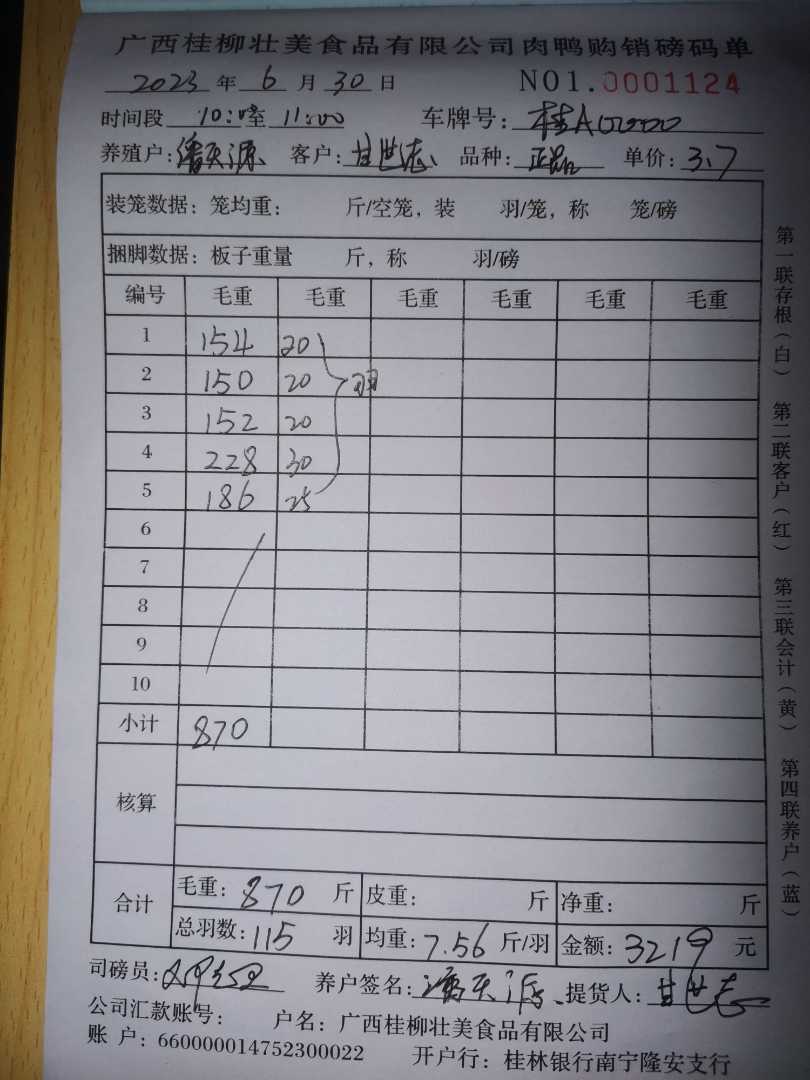 广西桂柳壮美食品有限公司肉鸭购销磅码单
2023 年 6 月 30 日 NO1.0001124
时间段 至 11:00 车牌号: 桂A00000
养殖户: 潘天源 客户: 甘世志 品种: 正品 单价: 3.7
装笼数据: 笼均重: 斤/空笼, 装 羽/笼, 称 笼/磅
捆脚数据: 板子重量 斤, 称 羽/磅
编号 毛重 毛重 毛重 毛重 毛重 毛重
1 154 20
2 150 20 羽
3 152 20
4 228 30
5 186 25
6
7
8
9
10
小计 870
核算
合计 毛重: 870 斤 皮重: 斤 净重: 斤
总羽数: 115 羽 均重: 7.56 斤/羽 金额: 3219 元
司磅员: 养户签名: 潘天源 提货人: 甘世志
公司汇款账号: 户名: 广西桂柳壮美食品有限公司
账 户: 660000014752300022 开户行: 桂林银行南宁隆安支行
第一联存根(白) 第二联客户(红) 第三联会计(黄) 第四联养户(蓝)